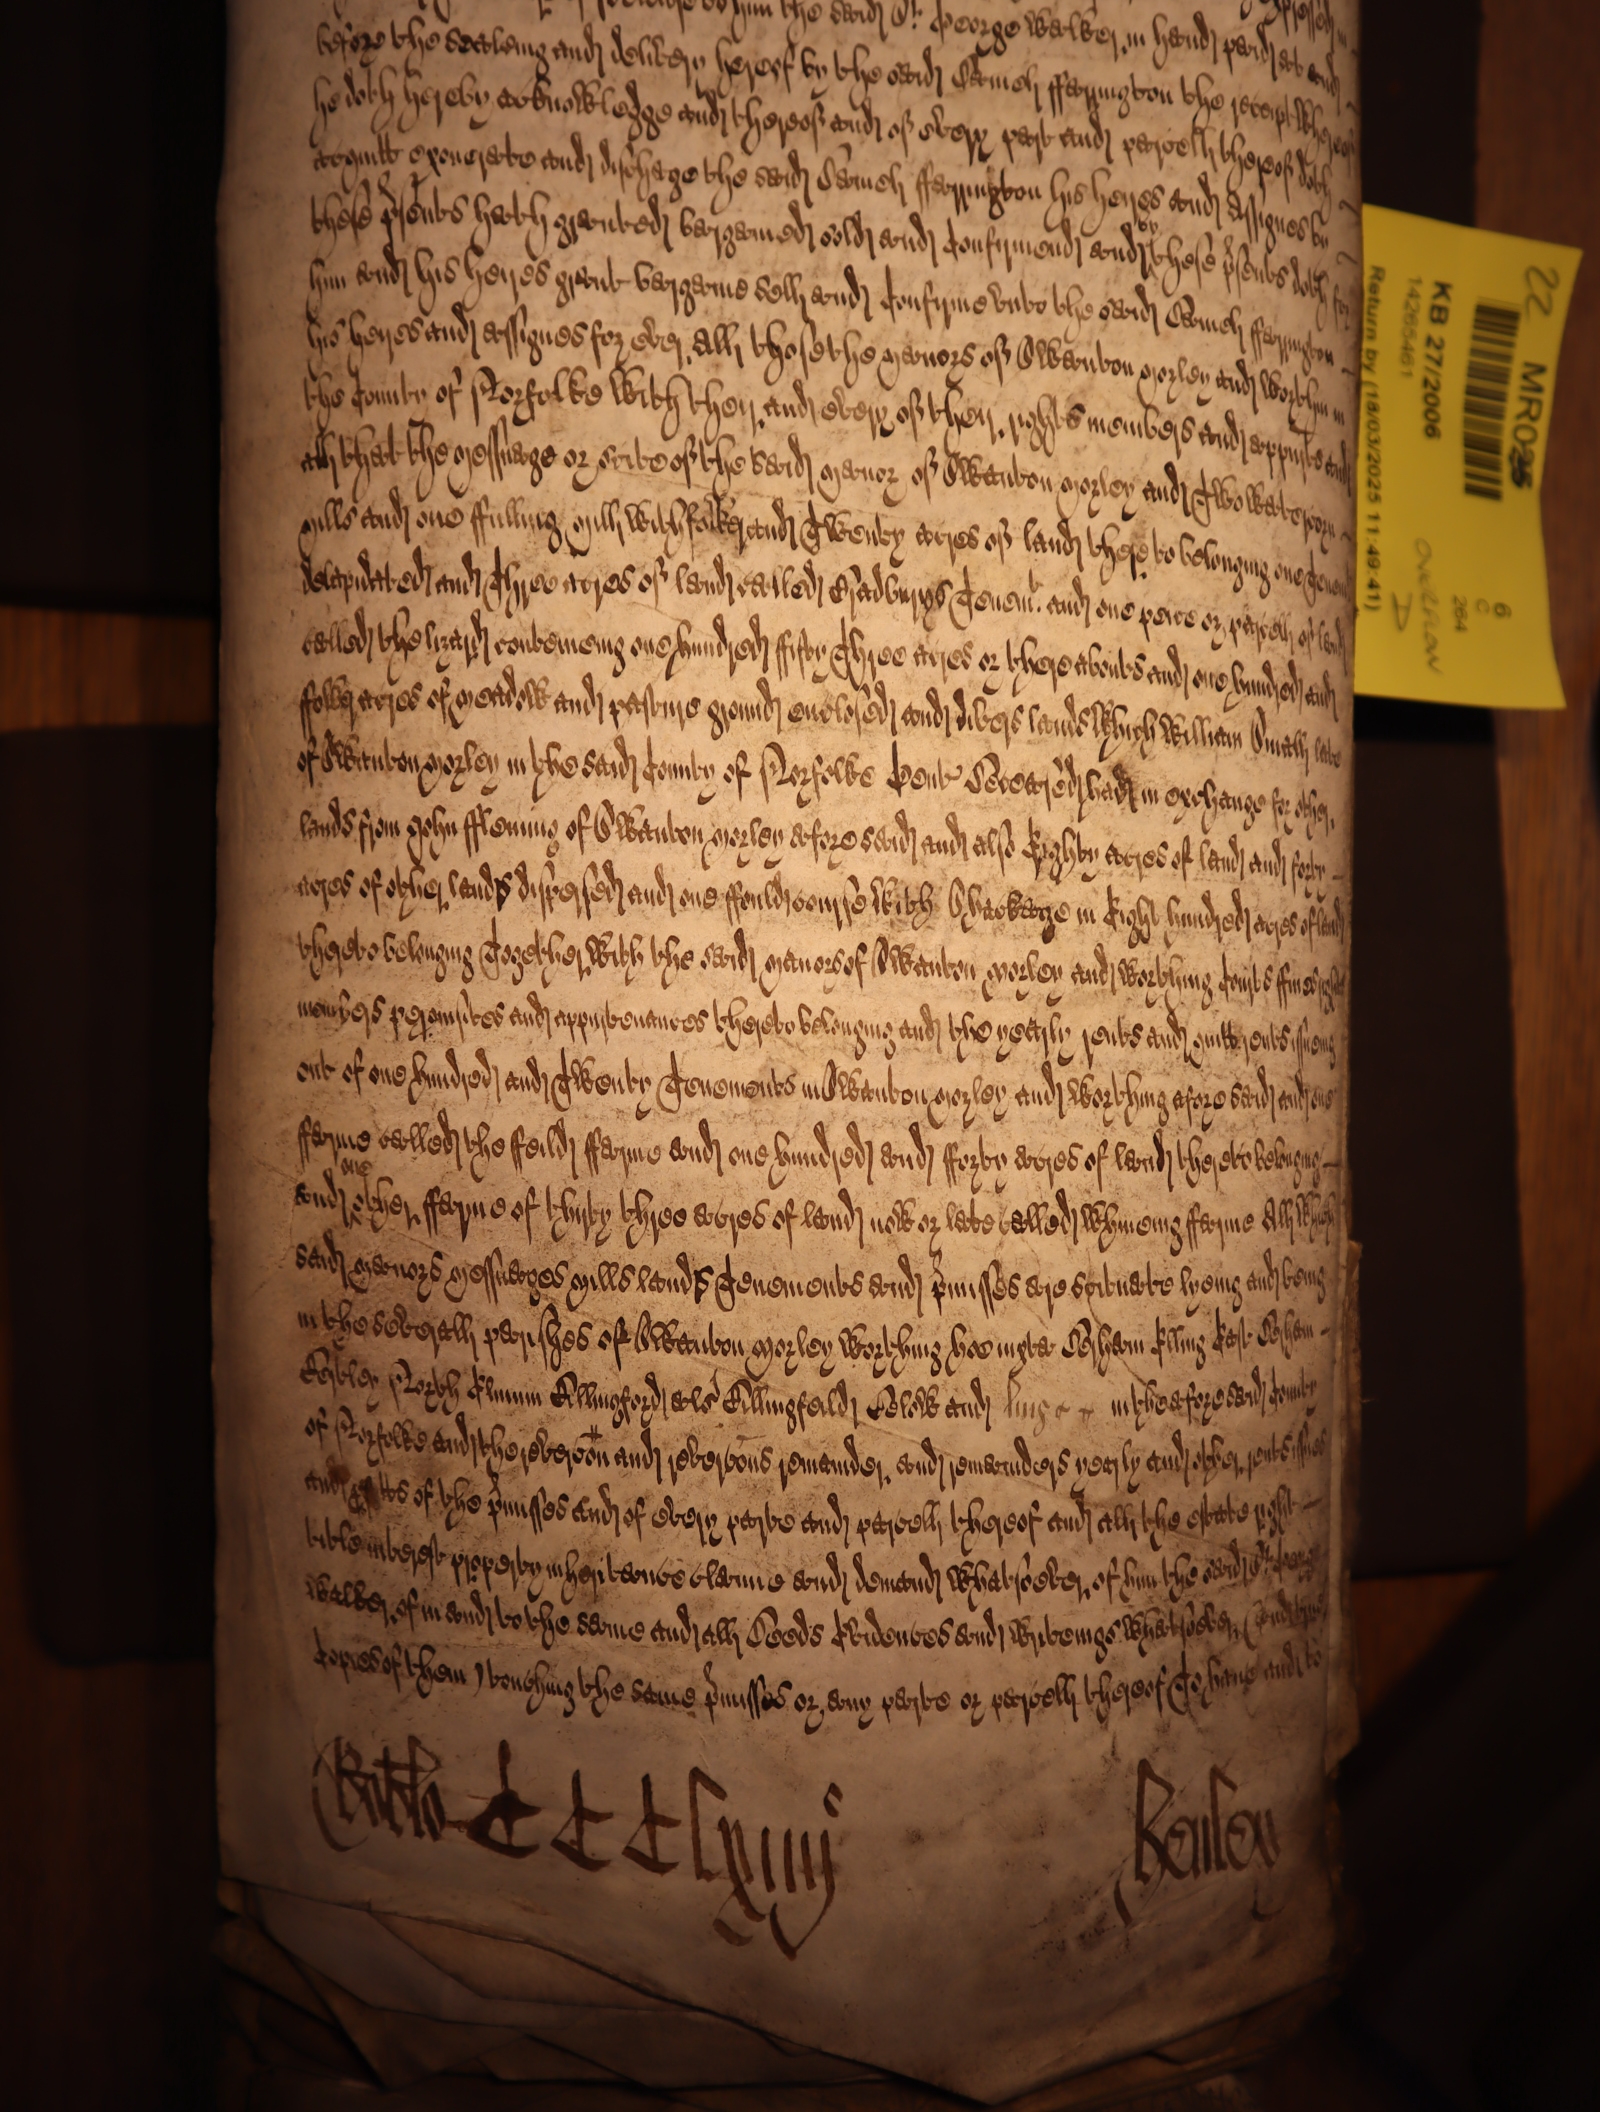 him the said Sr. George Walker in hand paid att and
before the sealeing and delivery hereof by the said Daniell ffarrington the receipt whereof
he doth hereby acknowledge and thereof and of every part and parcell thereof doth
acquitt exonerate and discharge the said Daniell ffarrington his heyres and Assignes by
these p'sents hath granted bargained sold and Confirmend and by these p'sents doth for
him and his heyres grant bargaine sell and Confirme unto the said Daniell ffarrington
his heyres and assignes for ever All those the manors of Swanton morley and worthin in
the County of Norfolke With their and every of their rights members and appurts and
all that the messuage or scite of the said manor of Swanton morley and Two Watercorn
mills and one ffulling mill with and Twenty acres of land there to belonging one Tenemt
delapidated and Three acres of land called Bradburys Tenemt. and one peece or parcell of land
called the lizard conteineing one hundred fifty Three acres or thereabouts and one hundred and
acres of meadow and pasture ground enclosed and divers lands Which William Small late
of Swanton morley in the said County of Norfolke Gent Deceased had in exchange for other
lands from John ffleming of Swanton morley aforesaid and also Eighty acres of land and forty
acres of other lands dispersed and one ffouldcourse With Shackage in Eight hundred acres of land
thereto belonging Together With the said manors of Swanton morley and Worthing Courts ffines
members perquisites and appurtenances thereto belonging and the yearly rents and quitt rents issueing
out of one hundred and Twenty Tenements in Swanton morley and Worthing aforesaid and one
ffarme called the ffeild ffarme and one hundred and fforty acres of land thereto belonging
and one other ffarme of thirty three acres of land now or late called Whineing ffarme All Which
said manors messuages mills lands Tenements and p'misses are scituate lyeing and being
in the severall parishes of Swanton morley Worthing Hoe Dirham Elling East Dirham
North Elmam Billingford als Billingfeild Below and in the aforesaid County
of Norfolke and the revercon and revercons remainder and remainders yearly and other rents issues
and of the p'misses and of every parte and parcell thereof and all the estate right
title interest property inheritance claime and demand Whatsoever of him the said Sr. George
Walker of in and to the same and all Deeds Evidences and Writeings Whatsoever
Copies of them) touching the same p'misses or any parte or parcell thereof To have and to
Rotlo CCClxiiij
MR025
22
KB 27/2006
14265461
Return by (18/03/2025 11:49:41)
6
C
264
OVERFLOW
D